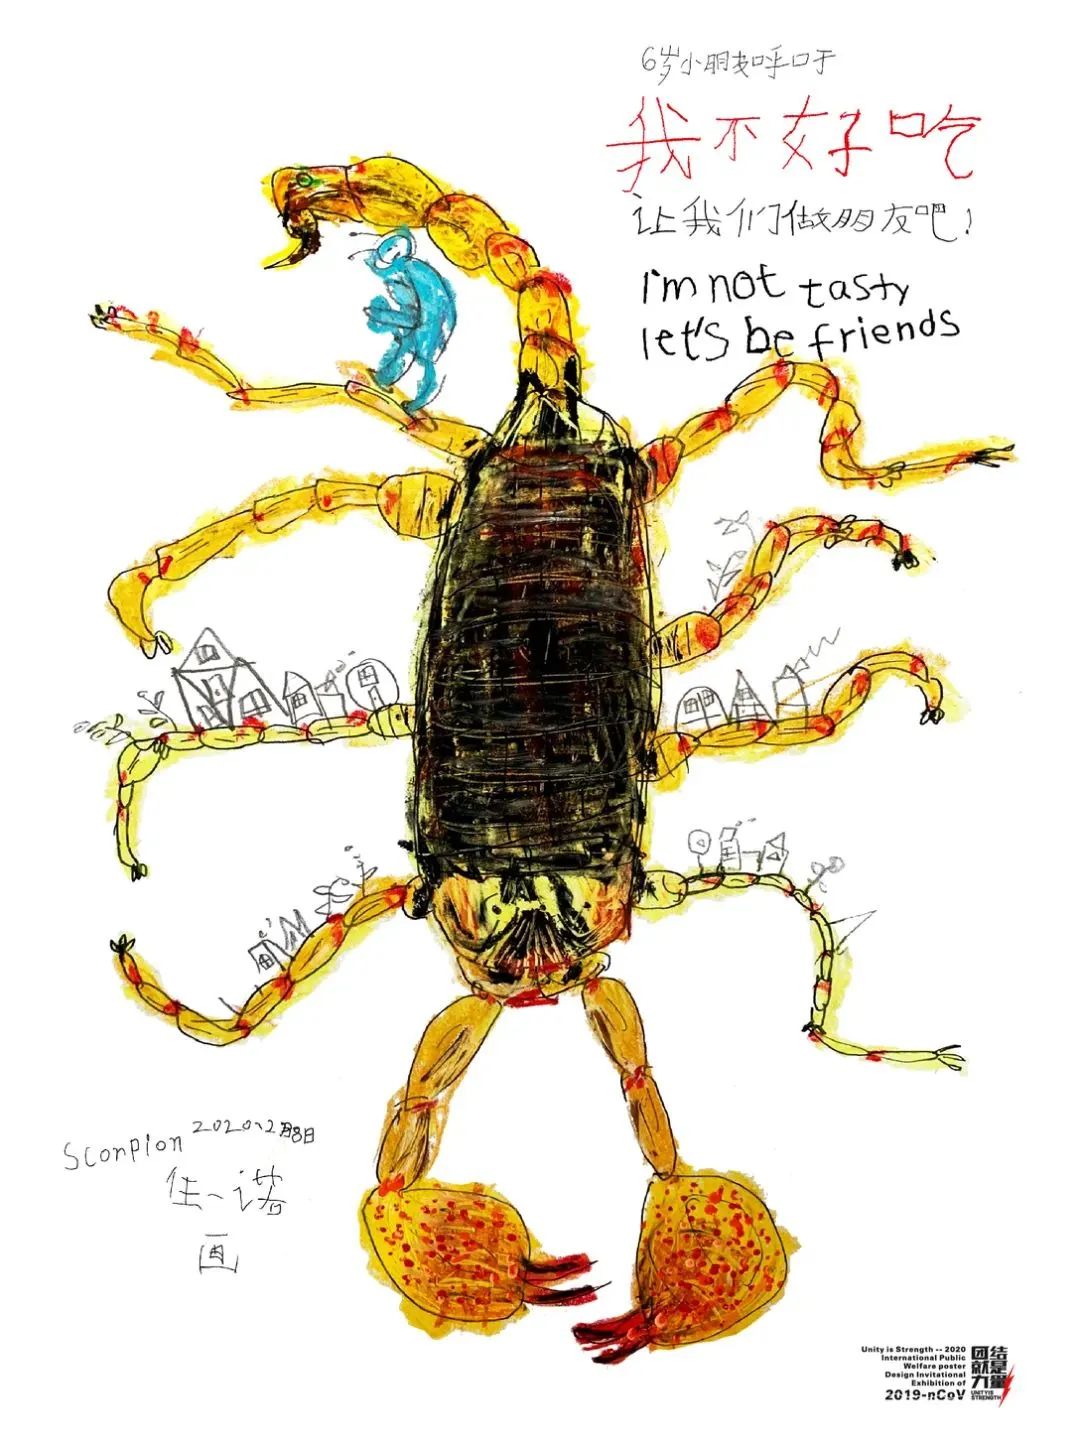 6岁小朋友呼吁
我不好吃
让我们做朋友吧!
I'm not tasty
let's be friends
Scorpion 2020、2月8日
一诺
画
Unity is Strength -- 2020
International Public
Welfare poster
Design Invitational
Exhibition of
2019-nCoV
团结
就是
力量
UNITY IS
STRENGTH